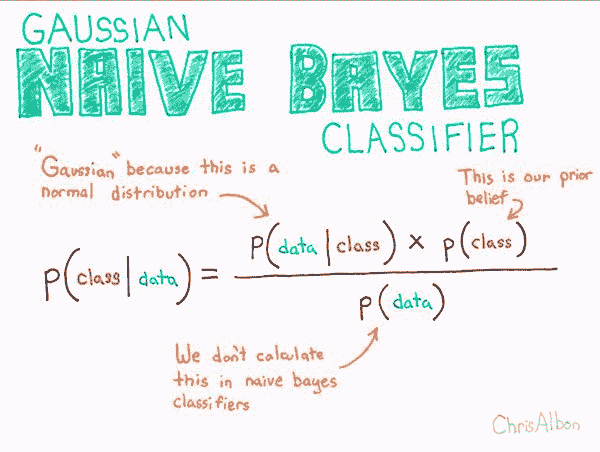 GAUSSIAN
NAIVE BAYES
CLASSIFIER
"Gaussian" because this is a
normal distribution
This is our prior
belief
p(class|data) = p(data|class) × p(class)
p(data)
We don't calculate
this in naive bayes
classifiers
ChrisAlbon